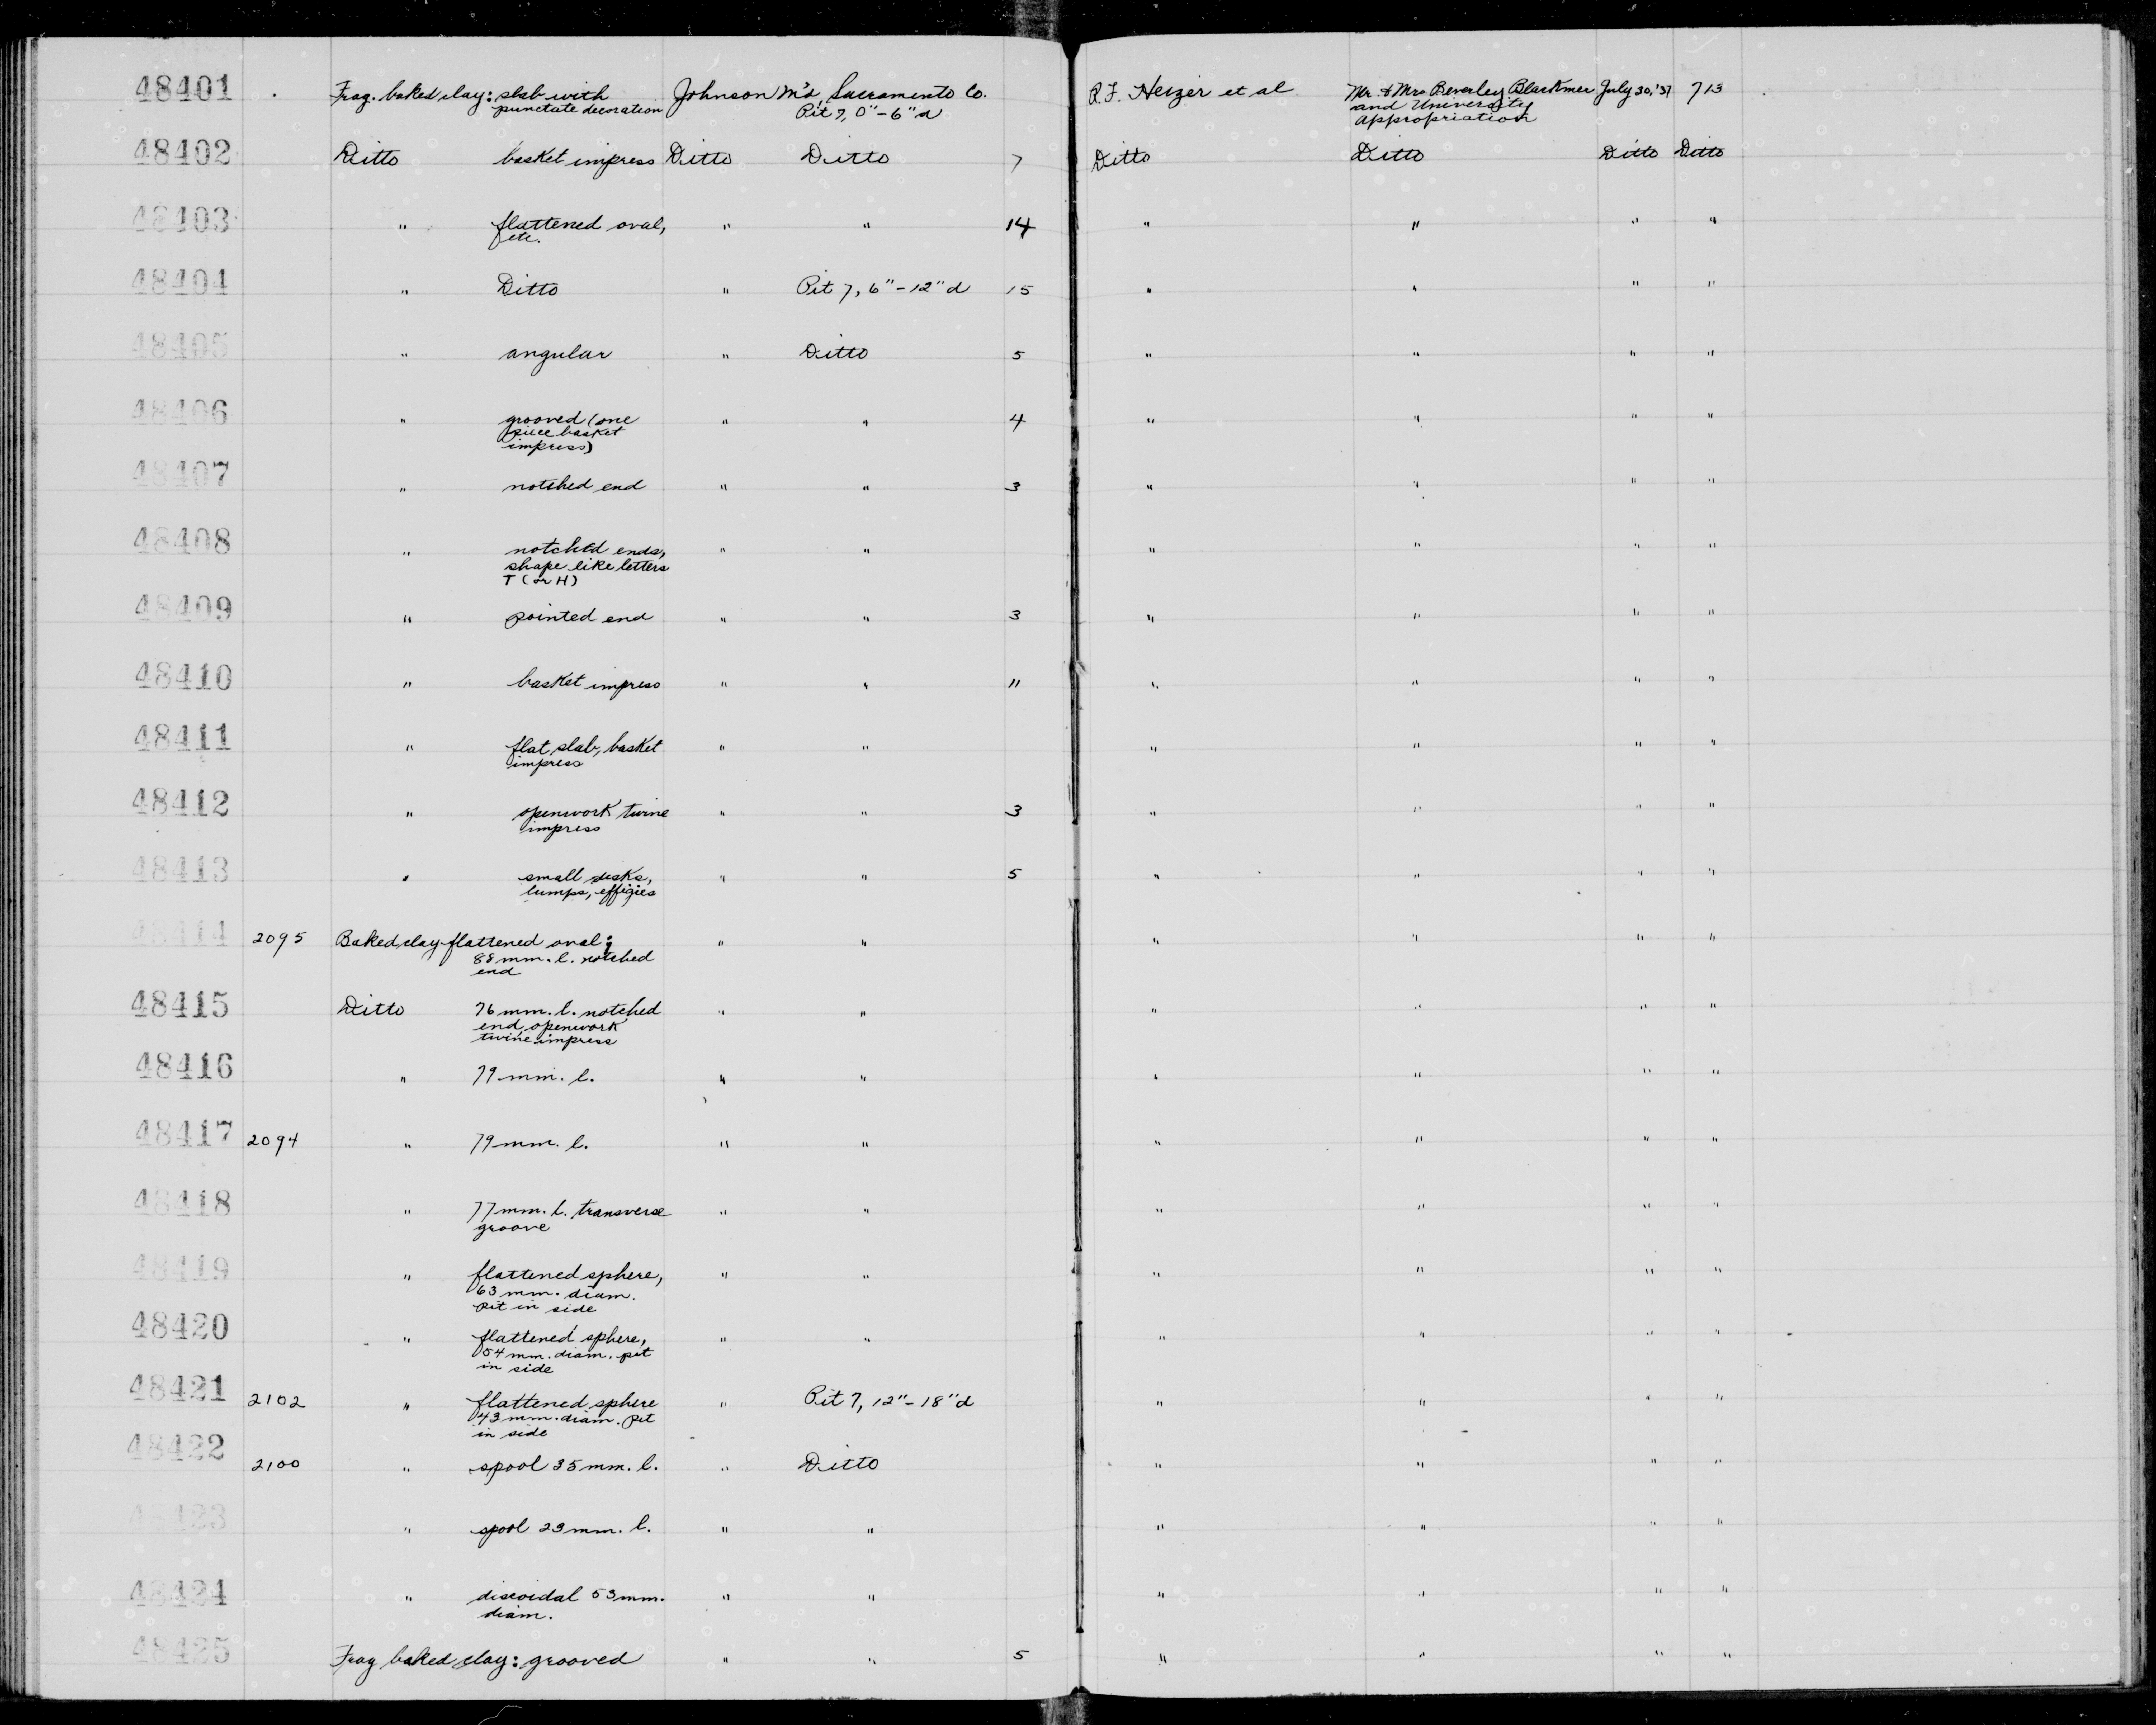 48401 Frag. baked clay: slab with Johnson M'd, Sacramento Co. R.F. Heizer et al Mr. & Mrs Beverley Blackmer July 30, '37 713
punctate decoration Pit 7, 0"-6" d and University
Appropriation
48402 Ditto basket impress Ditto Ditto 7 Ditto Ditto Ditto Ditto
48403 " flattened oval, " " 14 " " " "
etc.
48404 " Ditto " Pit 7, 6"-12" d 15 " " " "
48405 " angular " Ditto 5 " " " "
48406 " grooved (one " " 4 " " " "
piece basket
impress)
48407 " notched end " " 3 " " " "
48408 " notched ends, " " " " " "
shape like letters
T (or H)
48409 " pointed end " " 3 " " " "
48410 " basket impress " " 11 " " " "
48411 " flat slab, basket " " " " " "
impress
48412 " openwork twine " " 3 " " " "
impress
48413 " small disks, " " 5 " " " "
lumps, effigies
48414 2095 Baked clay flattened oval; " " " " " "
88 mm. l. notched
end
48415 Ditto 76 mm. l. notched " " " " " "
end, openwork
twine impress
48416 " 79 mm. l. " " " " " "
48417 2094 " 79 mm. l. " " " " " "
48418 " 77 mm. l. transverse " " " " " "
groove
48419 " flattened sphere, " " " " " "
63 mm. diam.
pit in side
48420 " flattened sphere, " " " " " "
54 mm. diam. pit
in side
48421 2102 " flattened sphere " Pit 7, 12"-18" d " " " "
43 mm. diam. pit
in side
48422 2100 " spool 35 mm. l. " Ditto " " " "
48423 " spool 23 mm. l. " " " " " "
48424 " discoidal 53 mm. " " " " " "
diam.
48425 Frag baked clay: grooved " " 5 " " " "